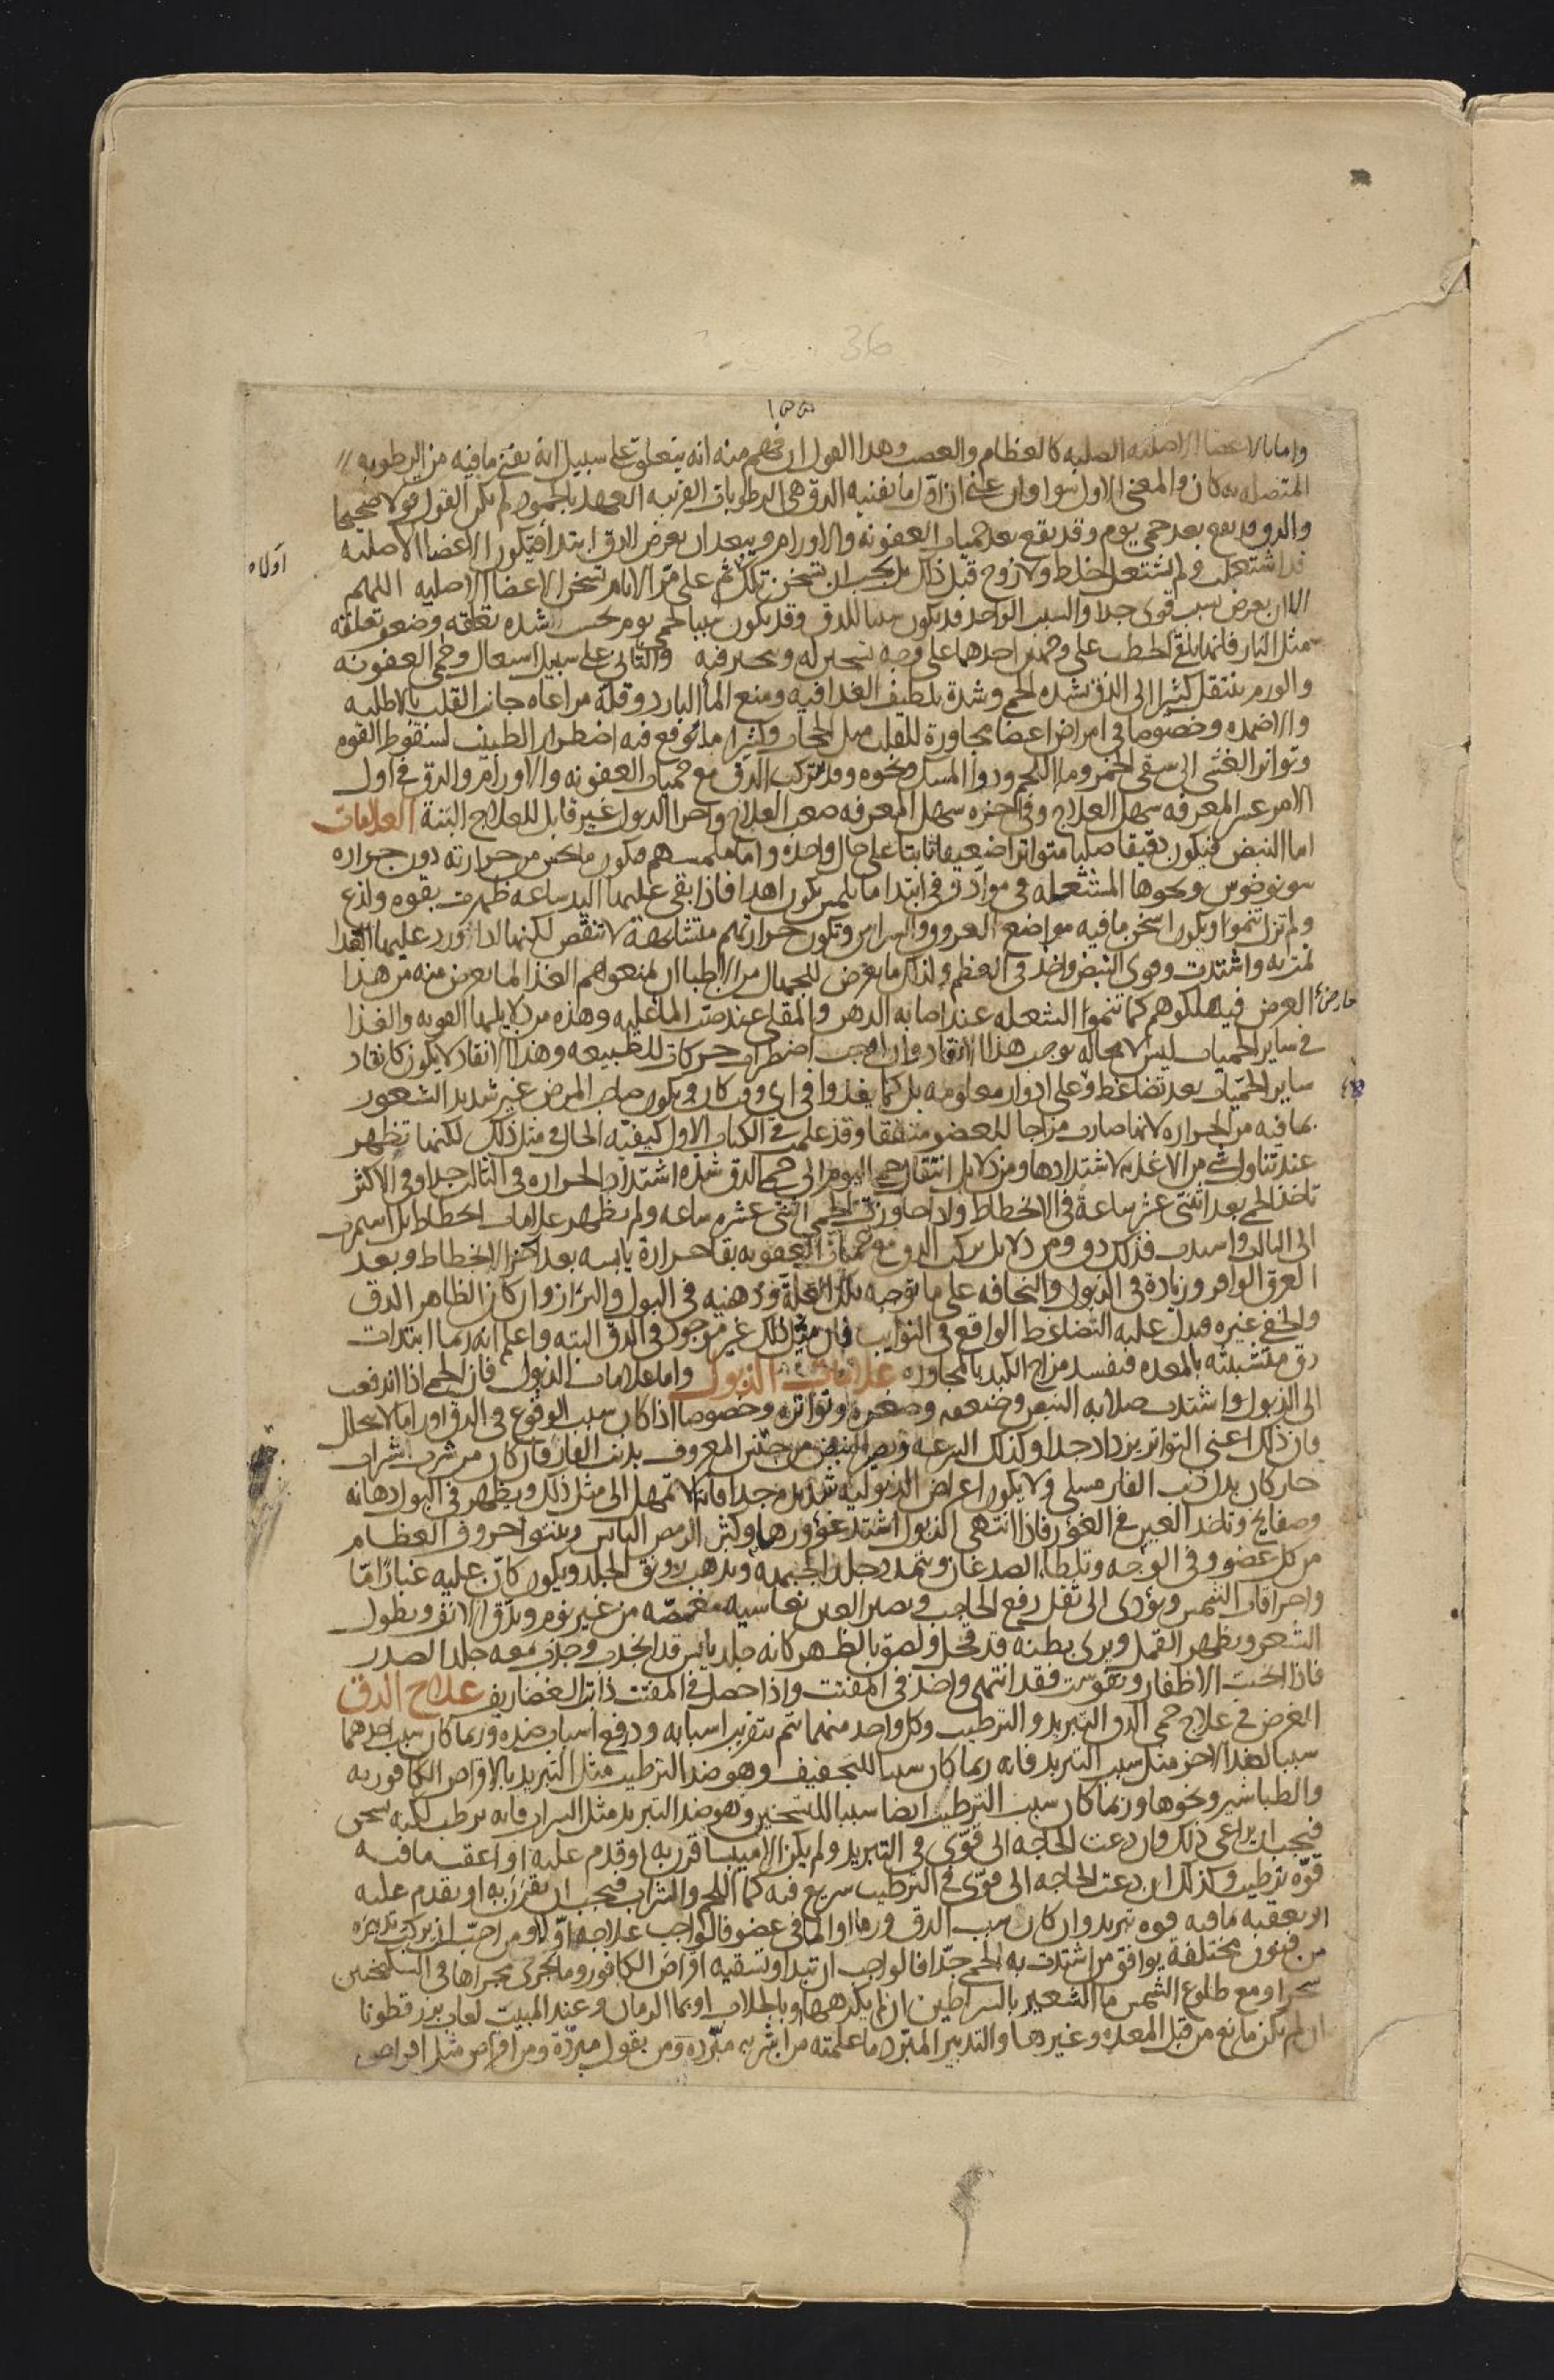 36
١٥٥
واما بالاعضا الاصليه الصلبه كالعظام والعصب وهدا القول ان فهم منه انه يتعلق على سبيل انه يفنى مافيه من الرطوبه
المتصله به كان والمعنى الاول سوا وان عنى ان اول ما يفنيه الدق هى الرطوبات القريبه العهد بالجمود لم يكن القول قولا صحيحا
والدق قد يقع بعد حمى يوم وقد يقع بعد حميات العفونه والاورام ويبعد ان يعرض الدق ابتدا فيكون الاعضا الاصليه
اولا
قد اشتعلت ولم تشتعل خلط ولا روح قبل ذلك بل يجب ان تسخن تلك ثم على مر الايام تسخن الاعضا الاصليه اللهم
الا ان يعرض سبب قوى جدا والسبب الواحد قد يكون سببا للدق وقد يكون سببا لحمى يوم بحسب شده تعلقه وضعف تعلقه
مثل النار فانها تلقى الحطب على وجهين احدهما على وجه تسخين له وتبخير فيه والثانى على سبيل اشتعال وحمى العفونه
والورم ينتقل كثيرا الى الدق لشده الحمى وشدة تلطيف الغدا فيه ومنع الما البارد وقلة مراعاه جانب القلب بالاطليه
والاضمده وخصوصا فى امراض اعضا مجاورة للقلب مثل الحجاب وكثيرا ما يوقع فيه اضطرار الطبيب لسقوط القوه
وتواتر الغشى الى سقى الخمر وما اللحم ودوا المسك ونحوه وقد تتركب الدق مع حميات العفونه والاورام والدق فى اول
الامر عسر المعرفه سهل العلاج وفى اخره سهل المعرفه صعب العلاج واخر الدبول غير قابل للعلاج البتة العلامات
اما النبض فيكون دقيقا صلبا متواترا ضعيفا ثابتا على حال واحده واما ملمسهم فيكون ما يحس من حرارته دون حراره
سونوخوس ونحوها المشتعله فى مواد وفى ابتدا ما يلمس يكون اهدا فاذا بقى عليها اليد ساعه ظهرت بقوه ولذع
ولم تزل تنموا ويكون اسخن مافيه مواضع العروق والشرايين وتكون حرارتهم متشابهة لا تنقص لكنها اذا ورد عليها الغدا
نمت به واشتدت وقوى النبض واخذ فى العظم ولذلك ما يعرض للجهال من الاطبا ان يمنعوهم الغذا لما يعرض منه من هذا
عارض
العرض فيهلكوهم كما تنموا الشعله عند اصابه الدهن والمقلى عند صب الما عليه وهذه من دلايلها القويه والغذا
فى ساير الحميات ليس لا محاله يوجب هذا الاتقاد وان اوجب اضطراب حركات للطبيعه وهذا الاتقاد لا يكون كاتقاد
ساير الحميات بعد تضاغط وعلى ادوار معلومه بل كما يغذوا فى اى وقت كان ويكون صاحب المرض غير شديد الشعور
بما فيه من الحراره لانها صارت مزاجا للعضو متفقا وقد علمت فى الكتاب الاول كيفيه الحال فى مثل ذلك لكنها تظهر
عند تناول شى من الاغذيه لاشتدادها ومن دلايل انتقال حمى اليوم الى حمى الدق شده اشتداد الحراره فى الثالث جدا وفى الاكثر
تاخذ الحمى بعد اثنتى عشر ساعة فى الانحطاط واذا جاوزت الحمى اثنى عشره ساعه ولم يظهر علامات انحطاط بل استمرت
الى الثالث واشتدت فذلك دق ومن دلايل تركب الدق مع حميات العفونه بقا حرارة يابسه بعد اخر الانحطاط وبعد
العرق الوافر وزيادة فى الذبول والنحافه على ما توجبه تلك العلة ودهنيه فى البول والبراز وان كان الظاهر الدق
والخفى غيره فيدل عليه التضاغط الواقع فى النوايب فان مثل ذلك غير موجود فى الدق البته واعلم انه ربما ابتدات
دق متشبثه بالمعده فيفسد مزاج الكبد بالمجاوره علامات الذبول واما علامات الذبول فان الحمى اذا اندفعت
الى الذبول واشتدت صلابه النبض وضعفه وصغره وتواتره وخصوصا اذا كان سبب الوقوع فى الدق اورام لا تتحلل
فان ذلك اعنى التواتر يزداد جدا وكذلك السرعه ويصير النبض من جنس المعروف بذنب الفار فان كان من شرب شراب
حار كان بدل ذنب الفار مسلى ولا يكون اعراض الذبوليه شديده جدا فانها لا تمهل الى مثل ذلك ويظهر فى البول دهانه
وصفايح وتاخذ العين فى الغور فاذا انتهى الذبول اشتد غؤورها وكثر الرمص اليابس وينتوا حروف العظام
من كل عضو وفى الوجه وتلطا الصدغان وتمدد جلد الجبهة ويذهب رونق الجلد ويكون كان عليه غبارا ما
واحراقات الشمس ويؤدى الى ثقل رفع الحاجب ويصير العين نعاسيه مغمضه من غير نوم ويدق الانف ويطول
الشعر ويظهر القمل ويرى بطنه قد قحل ولصق بالظهر كانه جلد يابس قد انجذب وجذب معه جلد الصدر
فاذا انحنت الاظفار وتقوست فقد انتهى واخذ فى المفتت واذا حصل فى المفتت ذابت الغضاريف علاج الدق
الغرض فى علاج حمى الدق التبريد والترطيب وكل واحد منهما يتم بتقريب اسبابه ودفع اسباب ضده وربما كان سبب احدهما
سببا لضد الاخر مثل سبب التبريد فانه ربما كان سببا للتجفيف وهو ضد الترطيب مثل التبريد بالاقراص الكافوريه
والطباشير ونحوها وربما كان سبب الترطيب ايضا سببا للتسخين وهو ضد التبريد مثل الشراب فانه يرطب لكنه يسخن
فيجب ان يراعى ذلك فان دعت الحاجه الى قوى فى التبريد ولم يكن الا ميبسا قرن به او قدم عليه او اعقب ما فيه
قوة ترطيب وكذلك ان دعت الحاجه الى قوى فى الترطيب سريع فيه كما اللحم والشراب فيجب ان يقرن به او يقدم عليه
او يعقبه ما فيه قوه تبريد وان كان سبب الدق ورما او الما فى عضو فالواجب علاجه اولا ومن احب ان يركب تدبيره
من فنون مختلفة يوافق من اشتدت به الحمى جدا فالواجب ان تبدا وتسقيه اقراص الكافور وما يجرى مجراها فى السكنجبين
سحرا ومع طلوع الشمس ما الشعير بالسراطين ان لم يكرهها او بالجلاب او بما الرمان وعند المبيت لعاب بزر قطونا
ان لم يكن مانع من قبل المعده وغيرها والتدبير المبرد ما علمته من اشربه مبرده ومن بقول مبردة ومن اقراص مثل اقراص